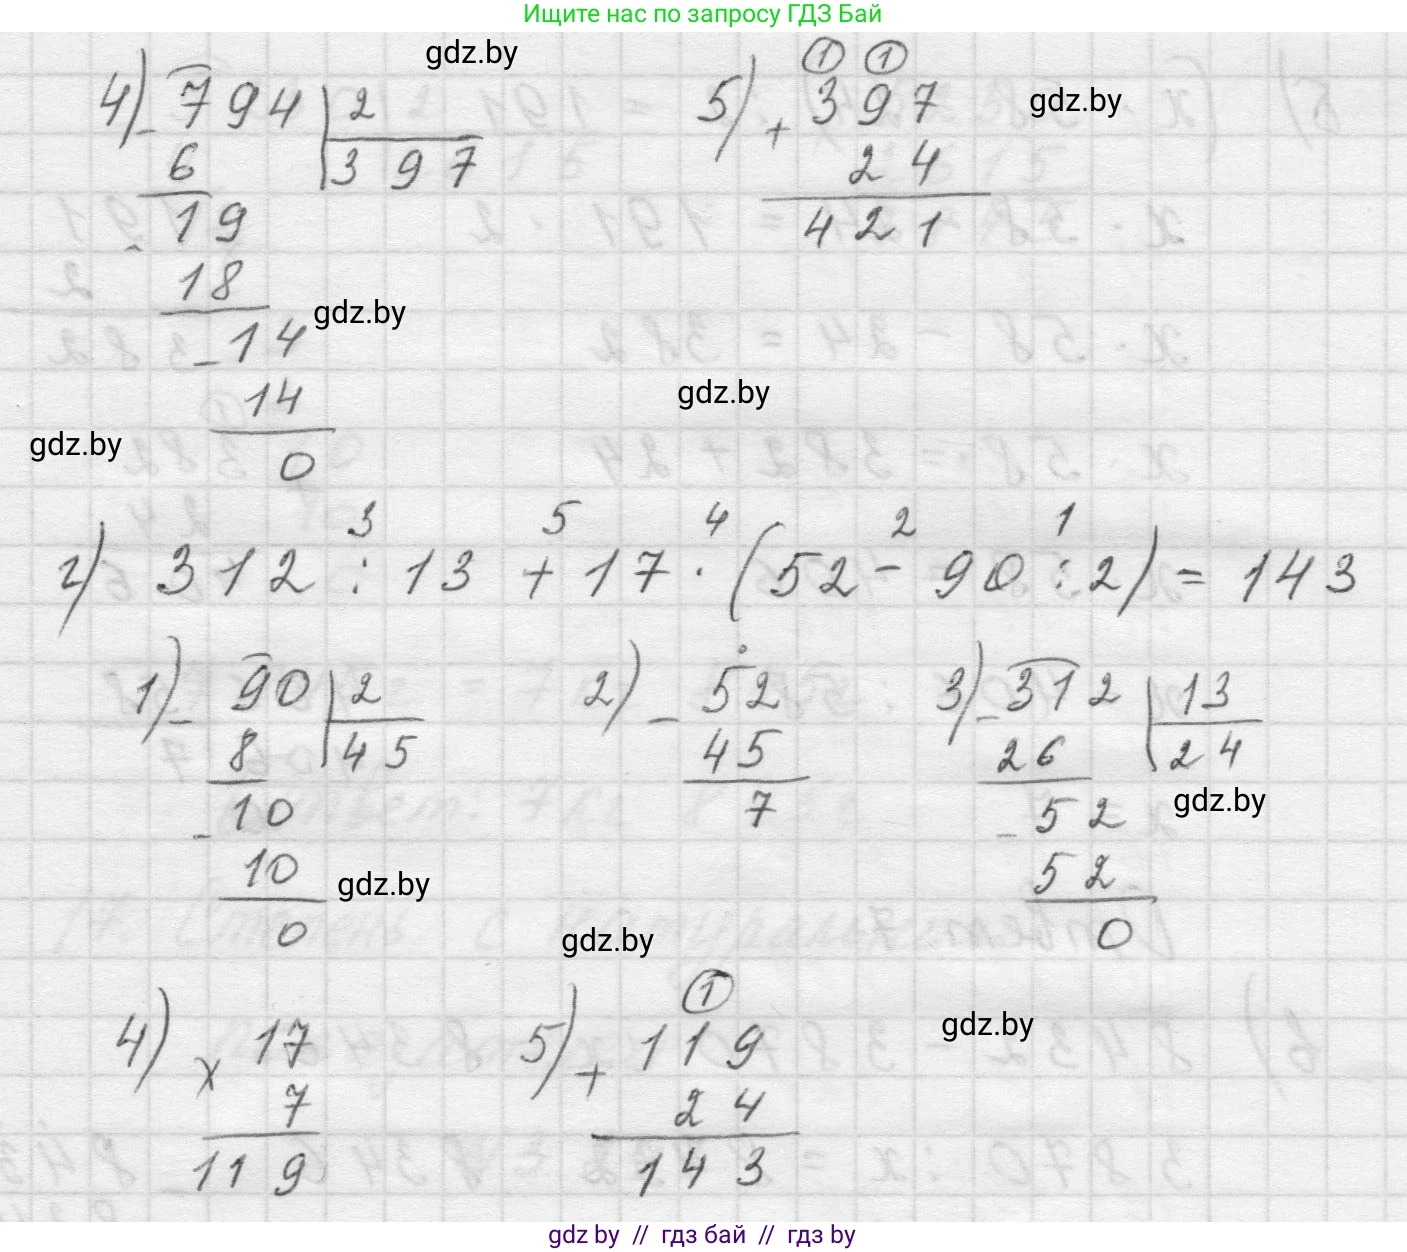 Ищите нас по запросу ГДЗ Бай
gdz.by
4) - 794 | 2
6 | 397
- 19
18
- 14
14
0
5) + ① ①
397
24
421
gdz.by
gdz.by
gdz.by
gdz.by
3 5 4 2 1
г) 312 : 13 + 17 · (52 - 90 : 2) = 143
1) - 90 | 2
8 | 45
- 10
10
0
2) - 52
45
7
3) - 312 | 13
26 | 24
- 52
52
0
gdz.by
gdz.by
gdz.by
4) × 17
7
119
5) + ①
119
24
143
gdz.by
gdz.by // гдз бай // гдз by